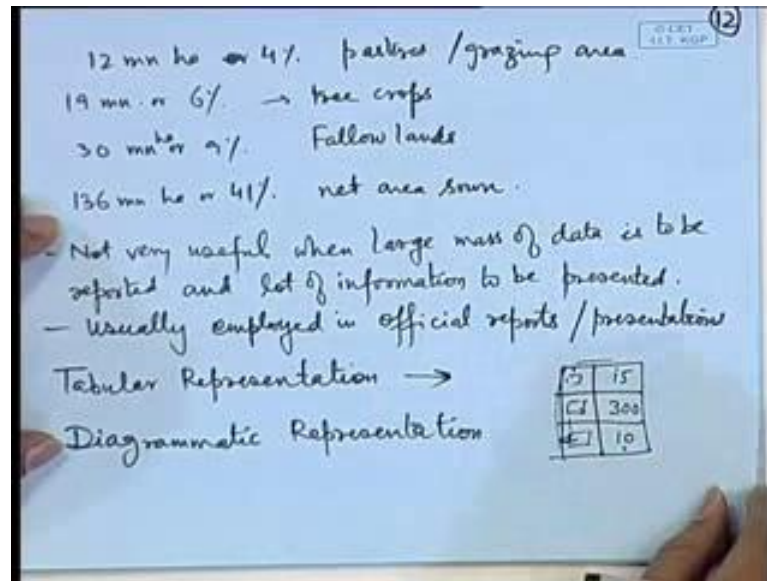 12
I.I.T. KGP
12 mn ha or 4%. pastures / grazing area
19 mn. or 6% → tree crops
30 mn ha or 9%. Fallow lands
136 mn ha or 41%. net area sown.
- Not very useful when large mass of data is to be
reported and lot of information to be presented.
- Usually employed in official reports / presentation
Tabular Representation →
15
300
10
Diagrammatic Representation